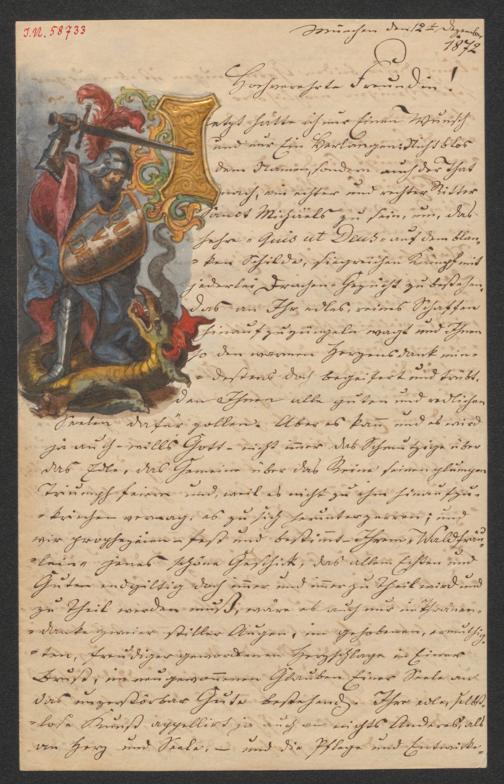 I.N. 58733
München den 12t Dezember
1872
Hochverehrte Freundin!
Jetzt hätte ich nur Einen Wunsch
und nur Ein Verlangen: Nicht blos
dem Namen, sondern auch der That
nach, ein echter und rechter Ritter
Sanct Michaels zu sein, um, das
hehre „Quis ut Deus“ auf dem blan-
ken Schilde, siegreichen Kampf mit
jederlei Drachen-Gezücht zu bestehen,
das an Ihr edles, reines Schaffen
hinauf zu züngeln wagt und Ihnen
so den warmen Herzensdank
den Ihnen alle guten und redlichen
Seelen dafür zollen. Aber es kann und es wird
ja auch – will's Gott – nicht immer das Schmutzige über
das Edle, das Gemeine über das Reine seinen
Triumph feiern und, weil es nicht zu ihm hinaufzu-
kriechen vermag, es zu sich herunterzerren; und
wir prophezeien fest und bestimmt Ihrem „Waldfräu-
lein“ jenes schöne Geschick, das allem Echten und
Guten endgiltig doch immer und immer zu Theil wird und
zu Theil werden muß, wäre es auch nur im Thränen-
danke zweier stiller Augen, im gehobenen, ermuthig-
ten, freudiger gewordenen Herzschlage in Einer
Brust, im neugewonnenen Glauben Einer Seele an
das unzerstörbar Gute bestehend. Ihre edle, selbst-
lose Kunst appellirt ja auch an nichts Anderes, als
an Herz und Seele, – und die Pflege und Entwicke-